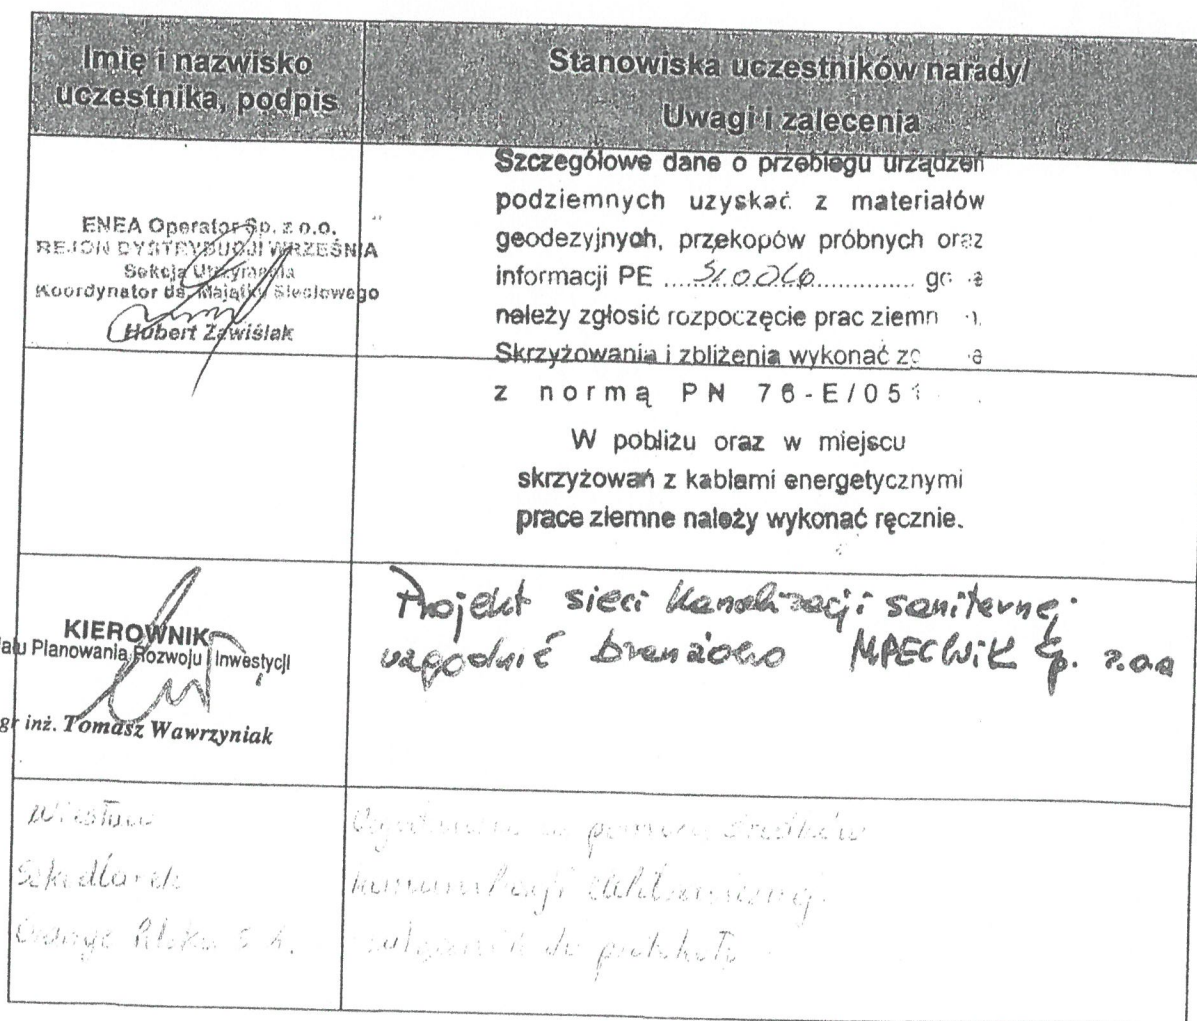 Imię i nazwisko
uczestnika, podpis
Stanowiska uczestników narady/
Uwagi i zalecenia
ENEA Operator Sp. z o.o.
REJON DYSTRYBUCJI WRZEŚNIA
Sekcja Utrzymania
Koordynator ds. Majątku Sieciowego
Hubert Zawiślak
Szczegółowe dane o przebiegu urządzeń
podziemnych uzyskać z materiałów
geodezyjnych, przekopów próbnych oraz
informacji PE ................
należy zgłosić rozpoczęcie prac ziemn
Skrzyżowania i zbliżenia wykonać
z normą PN 76-E/051
W pobliżu oraz w miejscu
skrzyżowań z kablami energetycznymi
prace ziemne należy wykonać ręcznie.
KIEROWNIK
ału Planowania Rozwoju i Inwestycji
gr inż. Tomasz Wawrzyniak
Projekt sieci kanalizacji sanitarnej
uzgodnić branżowo MPECWiK Sp. z.o.o
Wiesław
Szkudlarek
Orange Polska S.A.
środków
komunikacji
do protokołu